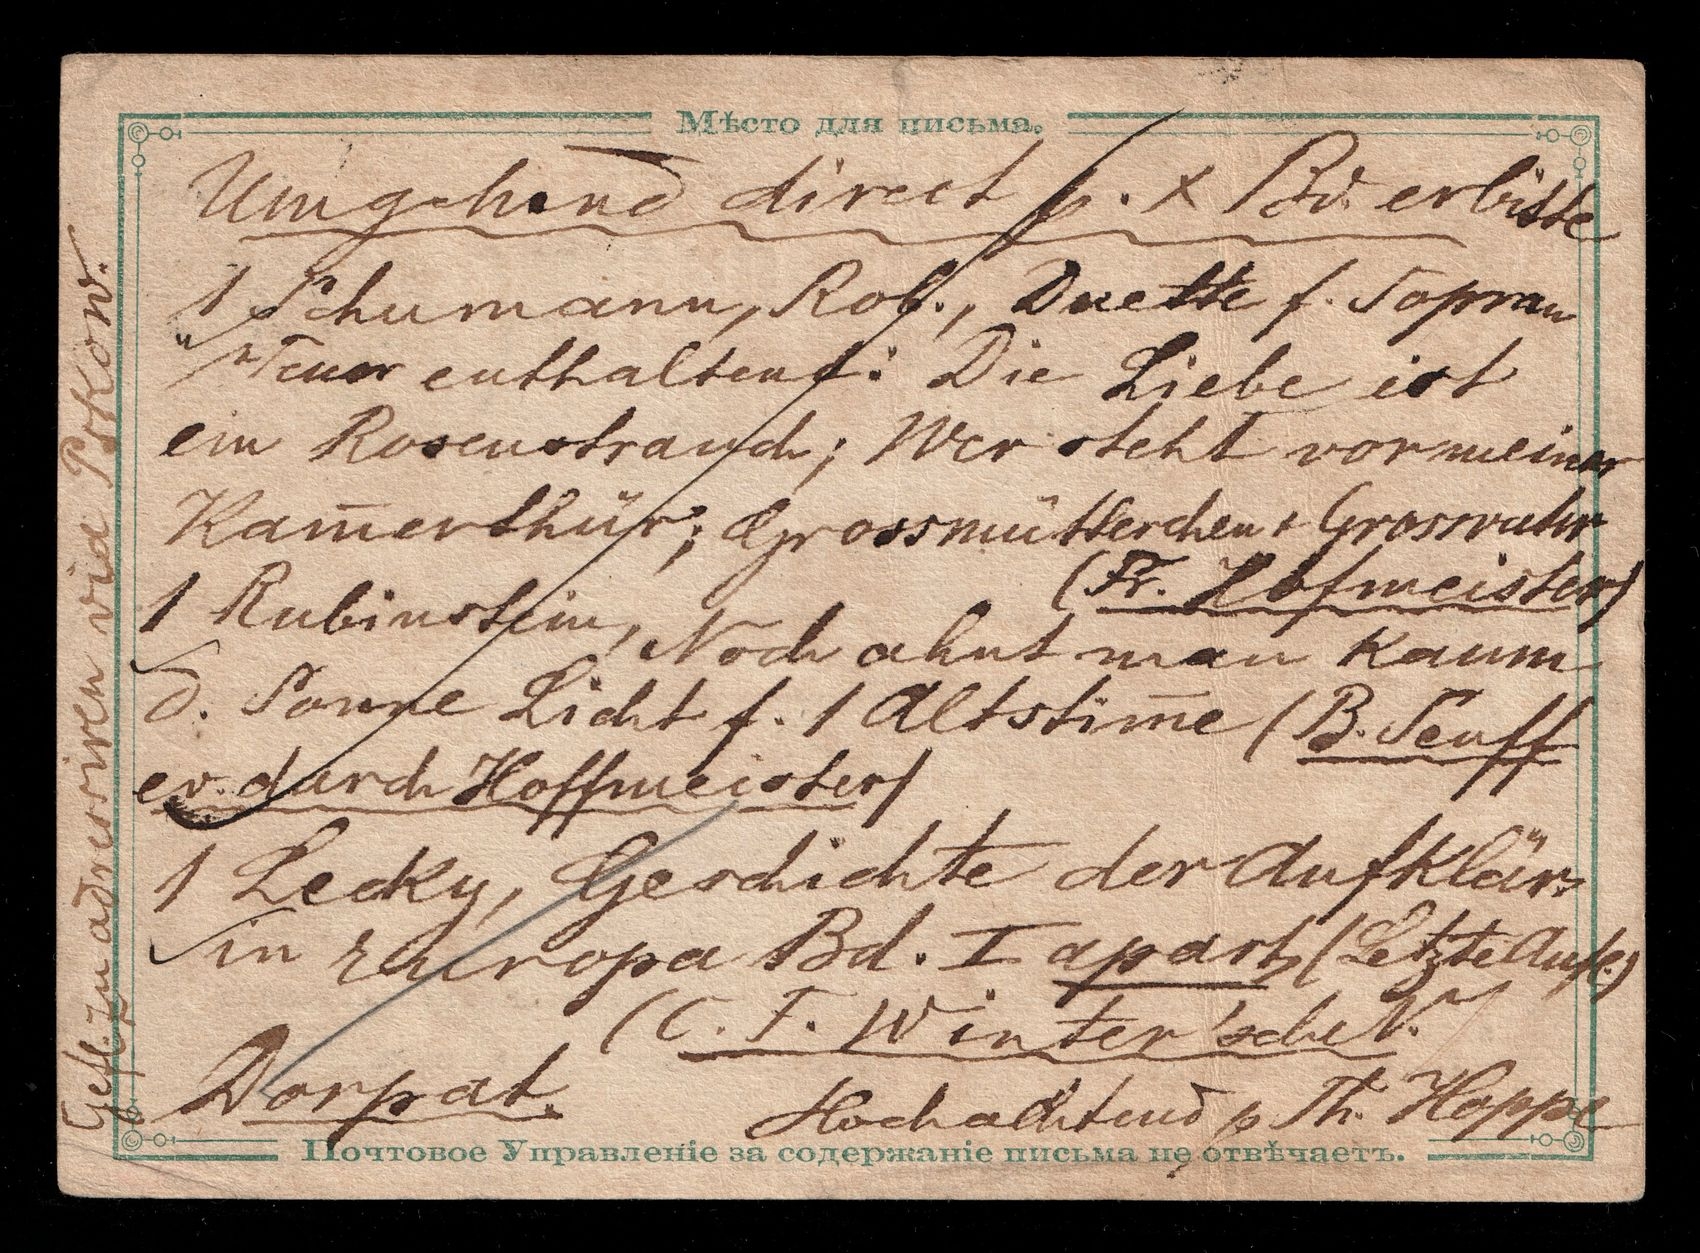 Мѣсто для письма.
Umgehend direct p. x Bd. erbitte
1 Schumann, Rob., Duette f. Sopran
" Tenor enthaltend: Die Liebe ist
ein Rosenstrauch; Wer steht vor meiner
Kam̄erthür; Grossmütterchen + Grossvater
(Fr. Hofmeister)
1 Rubinstein, Noch ahnt man kaum
d. Sonne Licht f. 1 Altstim̄e (B. Senff
ev. durch Hoffmeister)
1 Lecky, Geschichte der Aufklär.
in Europa Bd. I apart, (Letzte Aufl.)
(C. F. Winter'sche V.
Dorpat.
Hochachtend p Th. Hoppe
Почтовое Управленіе за содержаніе письма не отвѣчаетъ.
Gefl. zu adressiren via Pskow.